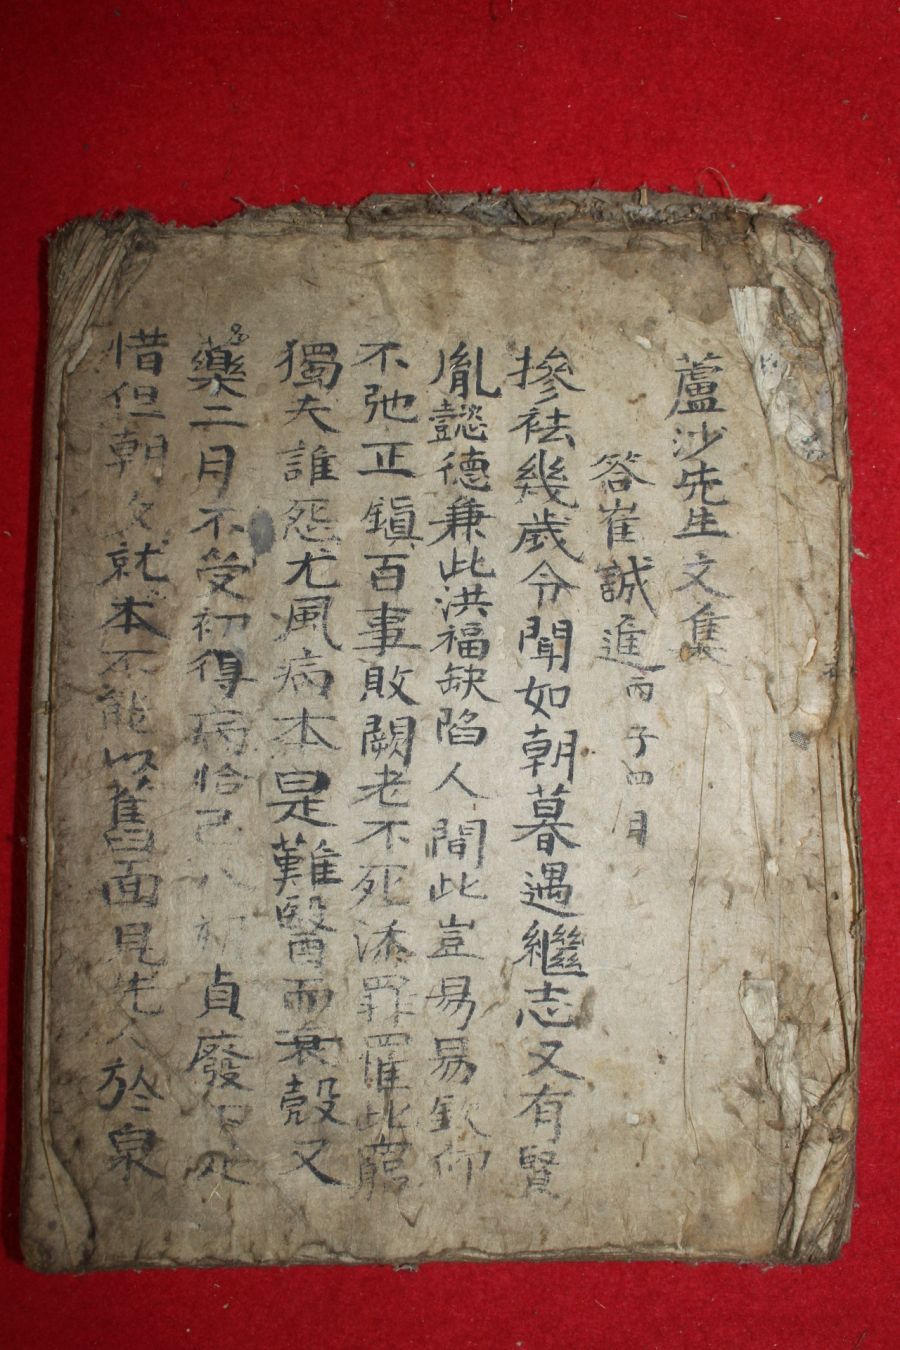 蘆沙先生文集
答崔誠進丙子四月
摻袪幾歲今聞如朝暮遇繼志又有賢
胤懿德兼此洪福缺陷人間此豈易易欽仰
不弛正鎭百事敗闕老不死添罪罹此窮
獨夫誰怨尤風病本是難醫而衰殼又
藥二月不受初得病恰己八朔貞廢何死
惜但朝夕就本不能以舊面見先人於泉